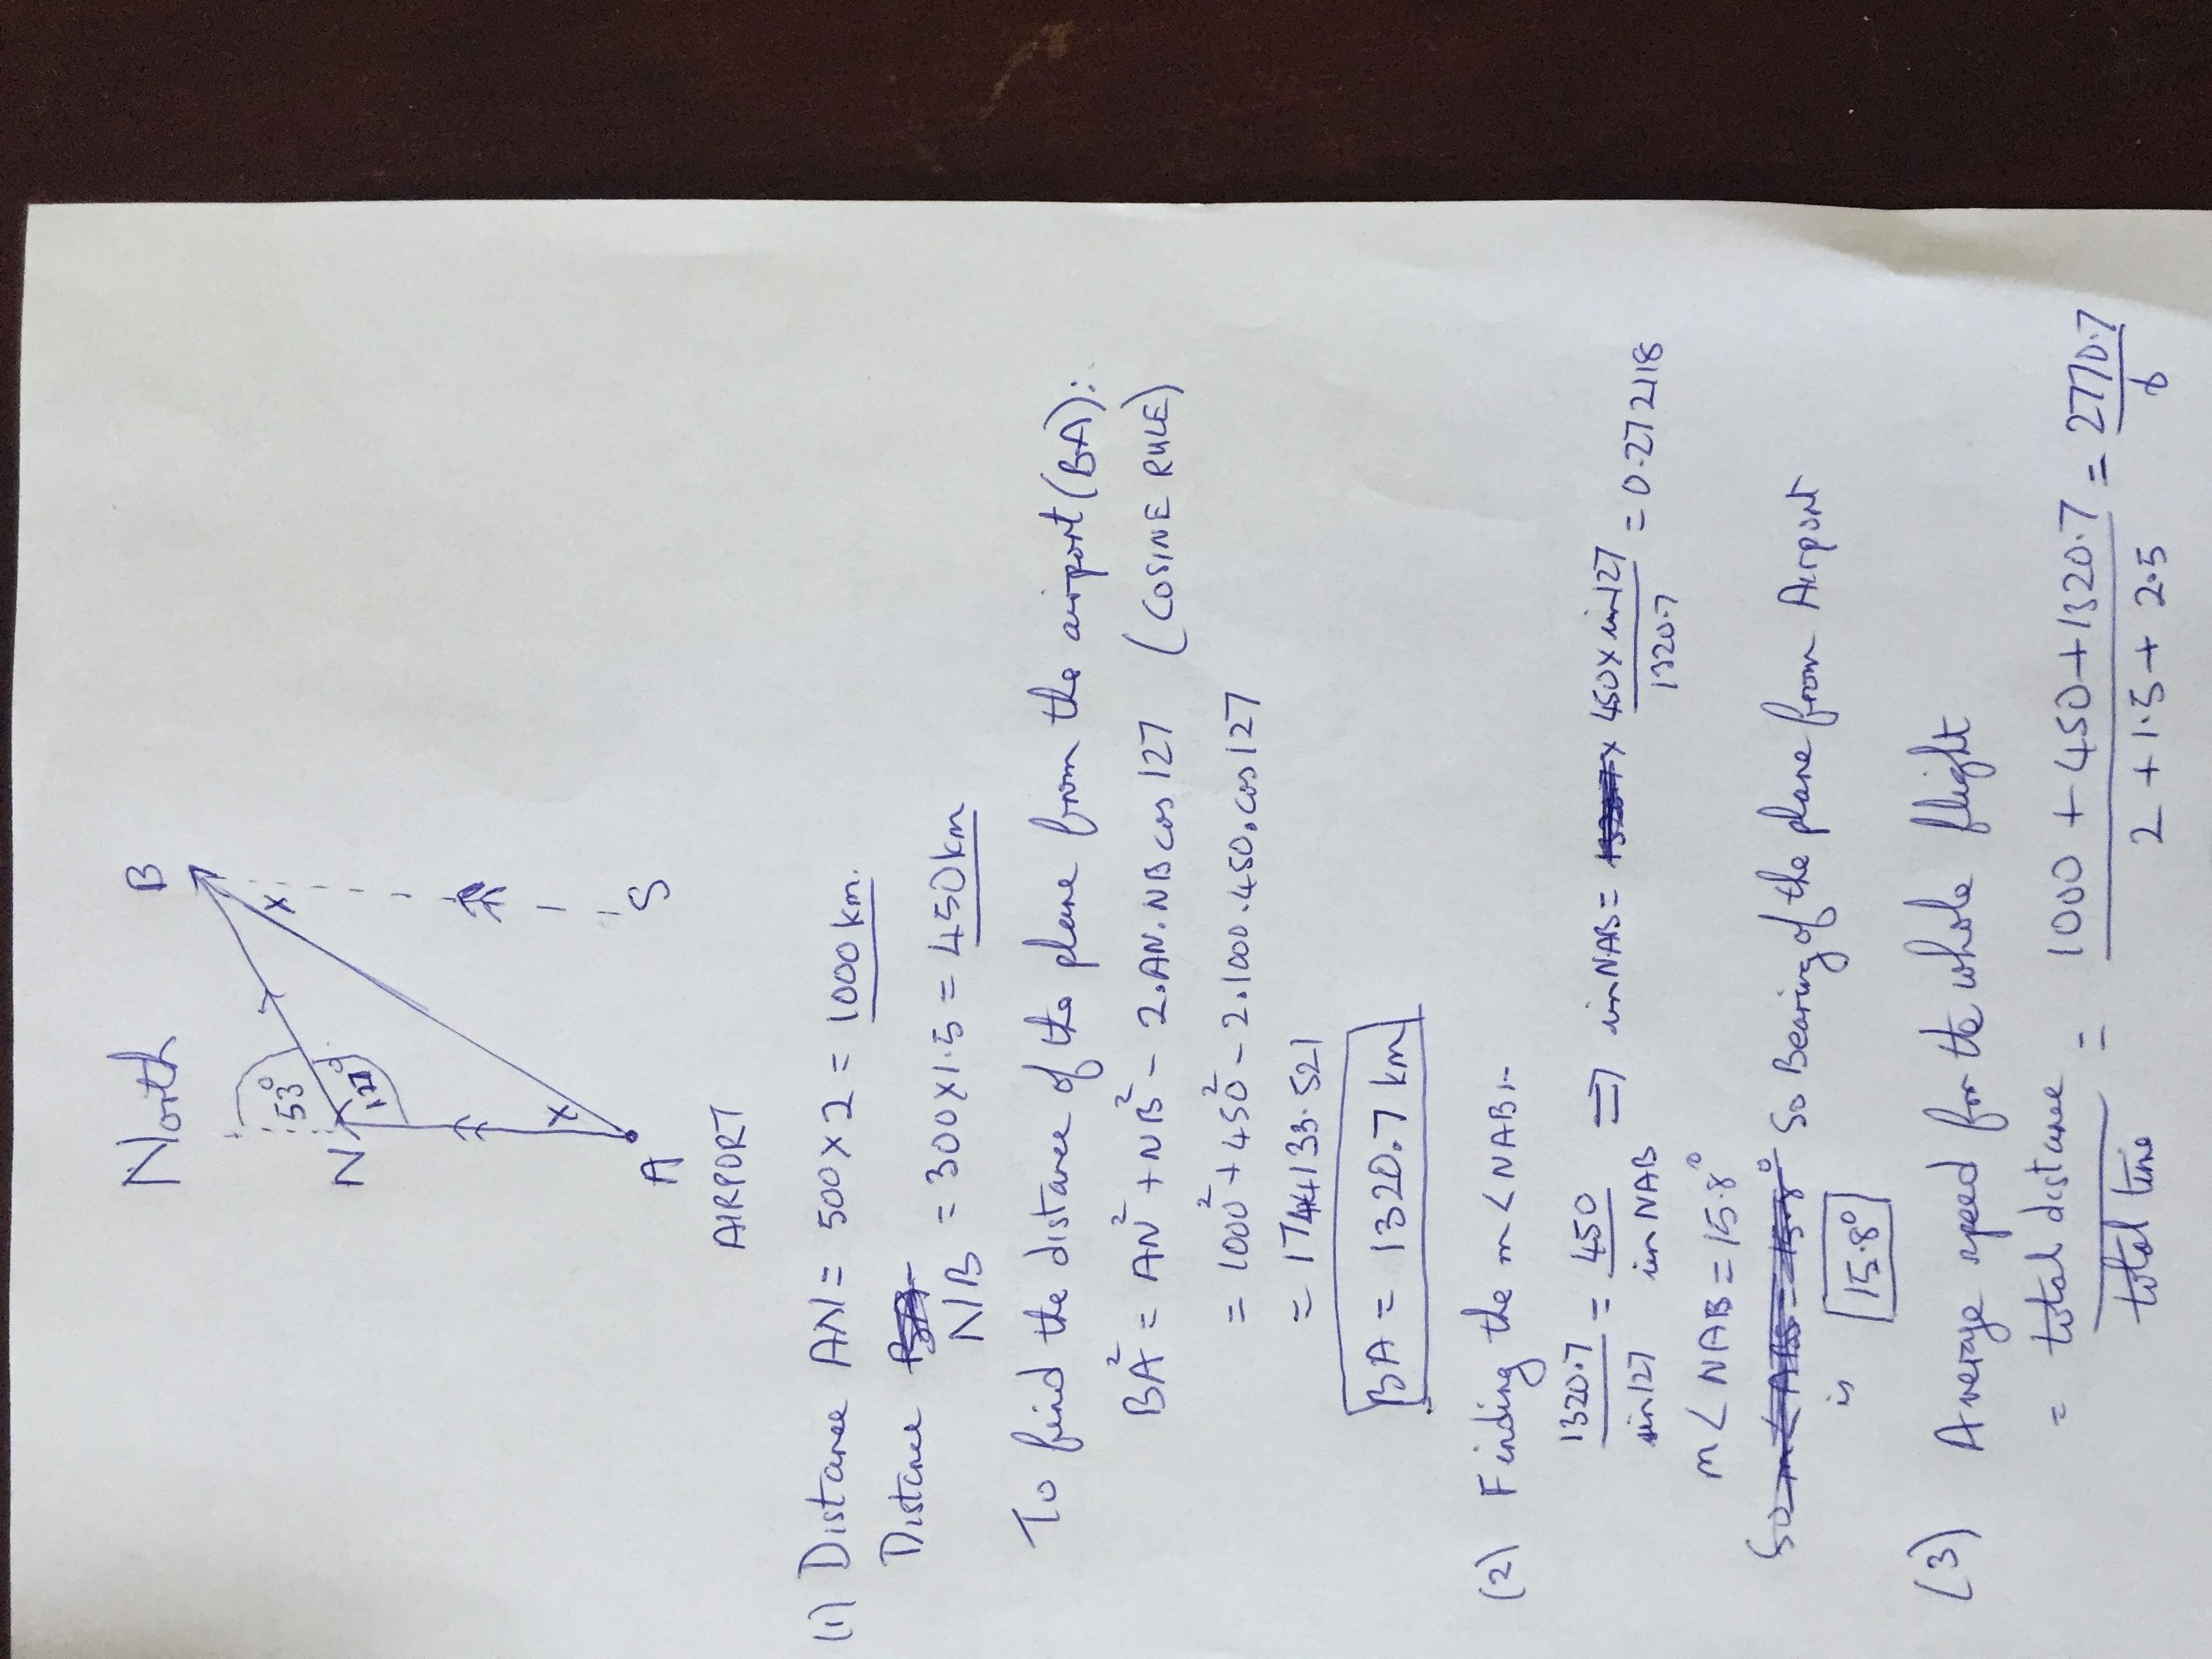 North
B
53°
N
127°
x
x
A
S
AIRPORT
(1) Distance AN = 500 x 2 = 1000 km.
Distance
NB = 300 x 1.5 = 450 km
To find the distance of the plane from the airport (BA):
BA² = AN² + NB² - 2.AN.NB cos 127 (COSINE RULE)
= 1000² + 450² - 2.1000.450.cos 127
= 1744133.521
BA = 1320.7 km
(2) Finding the m<NAB:-
1320.7/sin127 = 450/sin NAB => sin NAB = 450 x sin127/1320.7 = 0.272118
m<NAB = 15.8°
So Bearing of the plane from Airport
is 15.8°
(3) Average speed for the whole flight
= total distance/total time = 1000 + 450 + 1320.7/2 + 1.5 + 2.5 = 2770.7/6